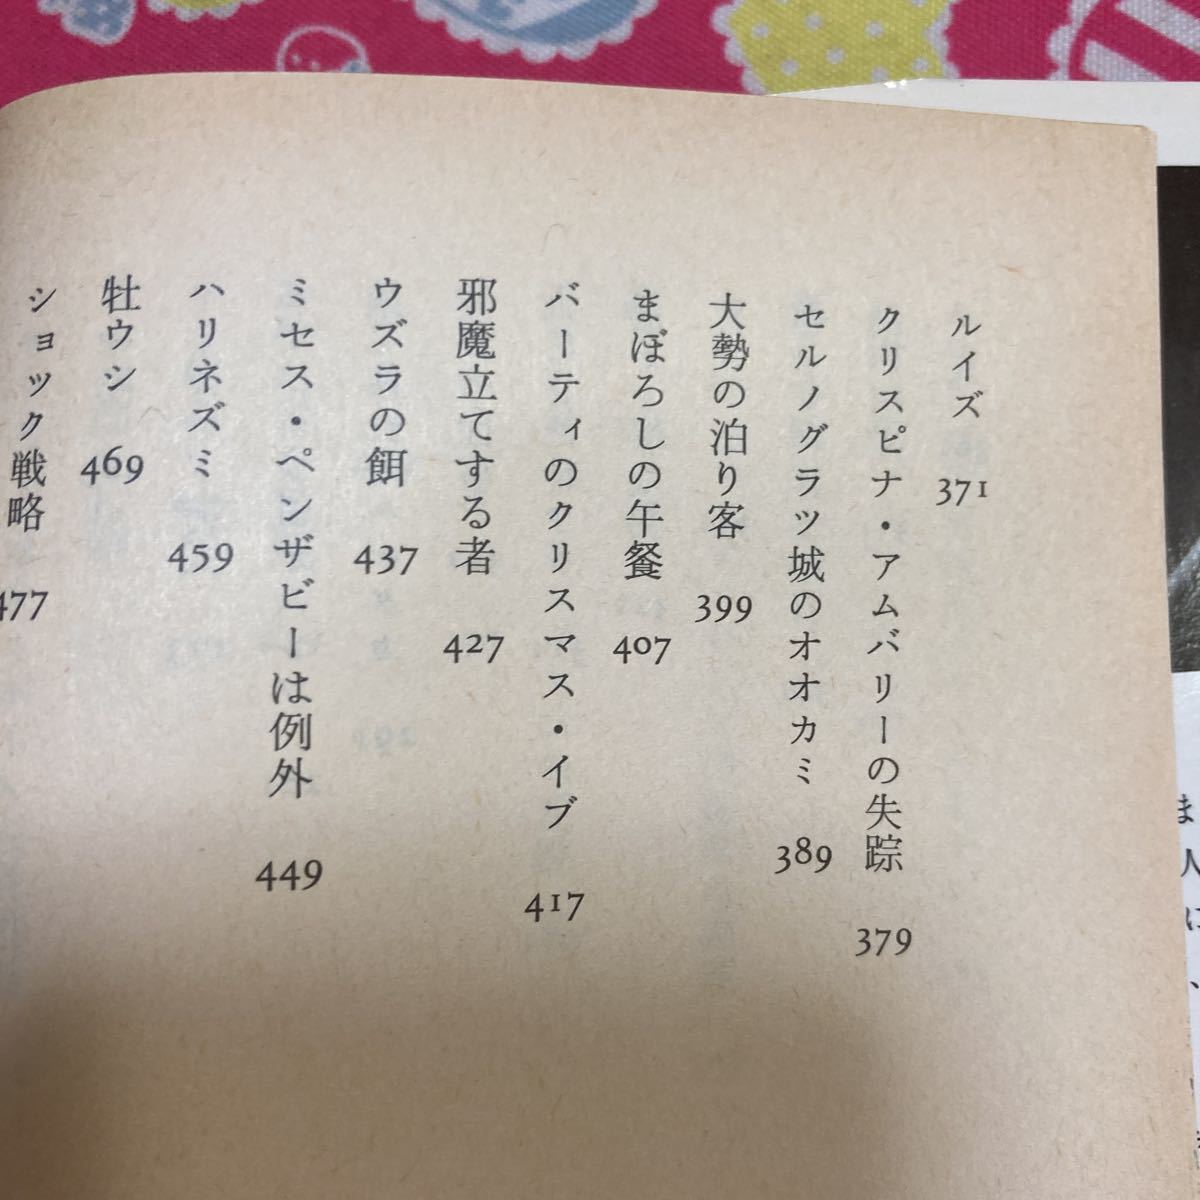 ルイズ 371
クリスピナ・アムバリーの失踪 379
セルノグラツ城のオオカミ 389
大勢の泊り客 399
まぼろしの午餐 407
バーティのクリスマス・イブ 417
邪魔立てする者 427
ウズラの餌 437
ミセス・ペンザビーは例外 449
ハリネズミ 459
牡ウシ 469
ショック戦略 477
ま
人
に
、